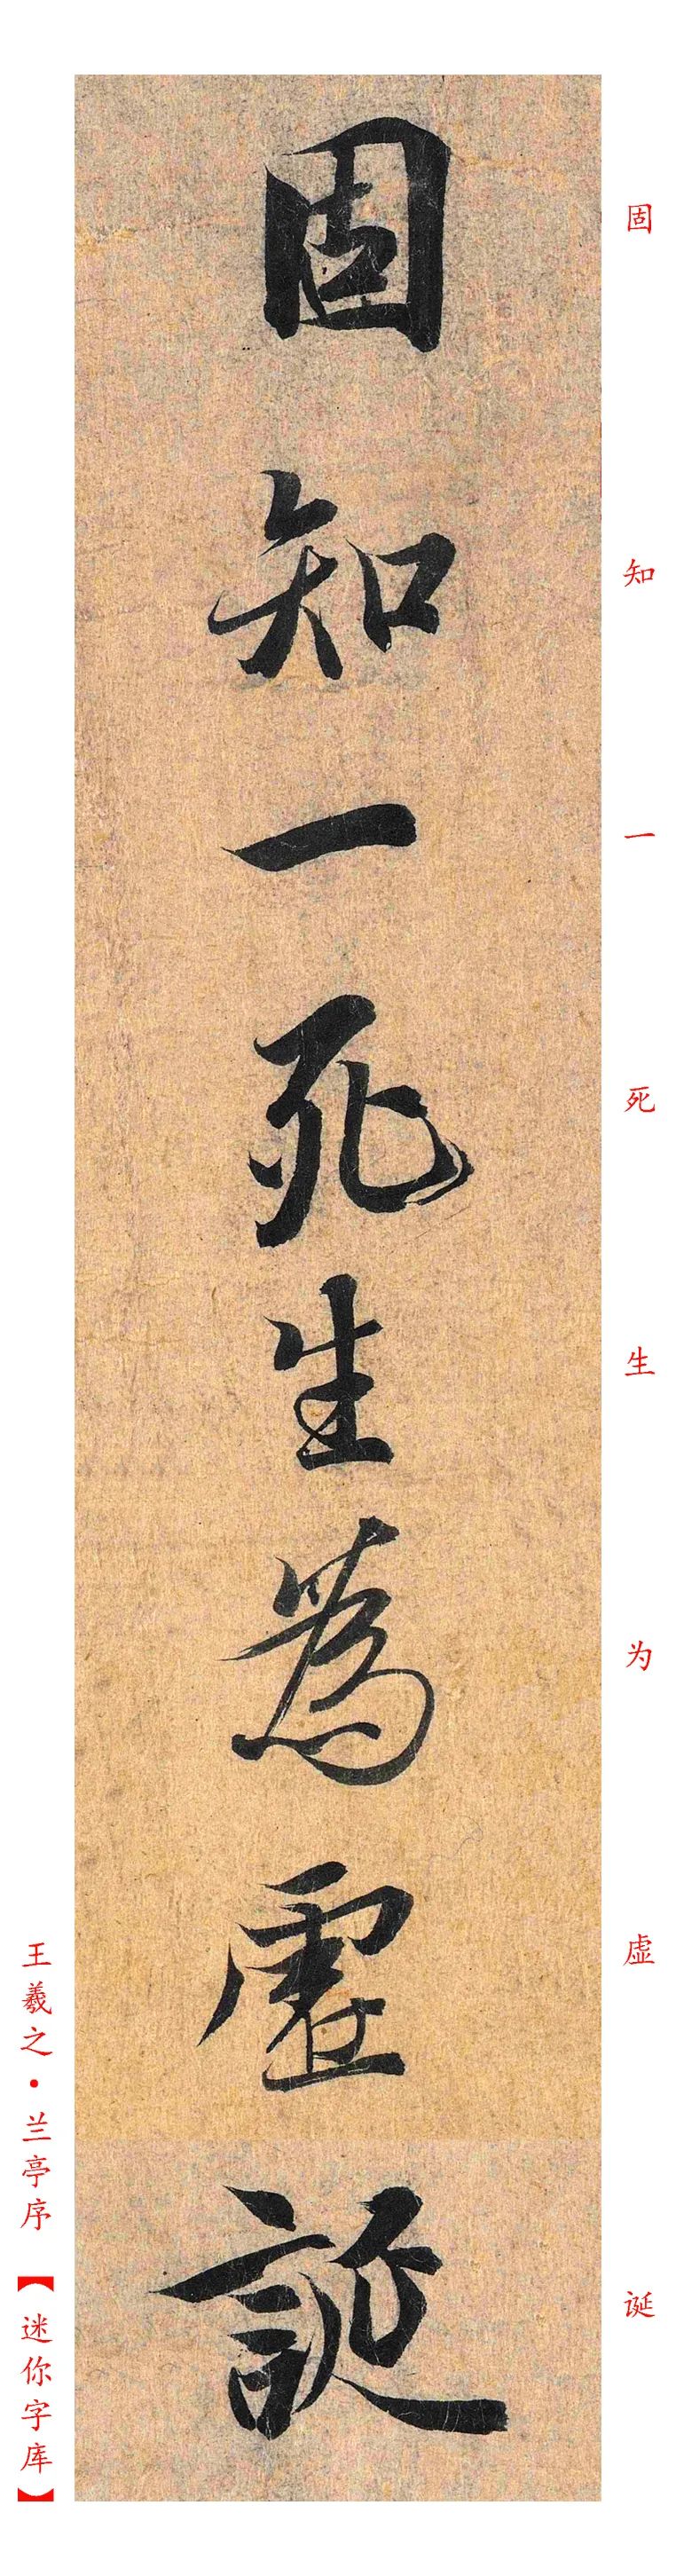 固知一死生為虛誕
固知一死生为虚诞
王羲之·兰亭序【迷你字库】